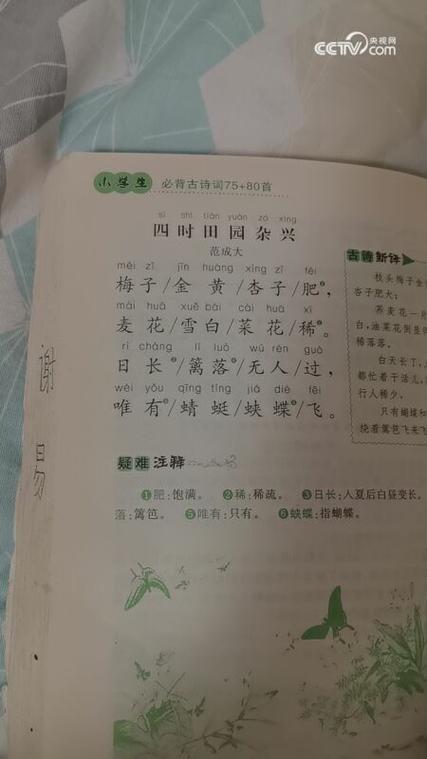 CCTV 央视网
com
小学生 必背古诗词75+80首
sì shí tián yuán zá xìng
四时田园杂兴
范成大
méi zǐ jīn huáng xìng zǐ féi
梅子/金黄/杏子/肥❶，
mài huā xuě bái cài huā xī
麦花/雪白/菜花/稀❷。
rì cháng lí luò wú rén guò
日长❸/篱落❹/无人/过，
wéi yǒu qīng tíng jiá dié fēi
唯有❺/蜻蜓/蛱蝶❻/飞。
疑难注释
❶肥：饱满。 ❷稀：稀疏。 ❸日长：入夏后白昼变长。
落：篱笆。 ❺唯有：只有。 ❻蛱蝶：指蝴蝶。
古诗新译
枝头梅子金
杏子肥大；
荞麦花一片
白，油菜花倒是
稀落落。
白天长了，
都忙着干活儿，
行人稀少。
只有蝴蝶和
绕着篱笆飞来飞
谢
易